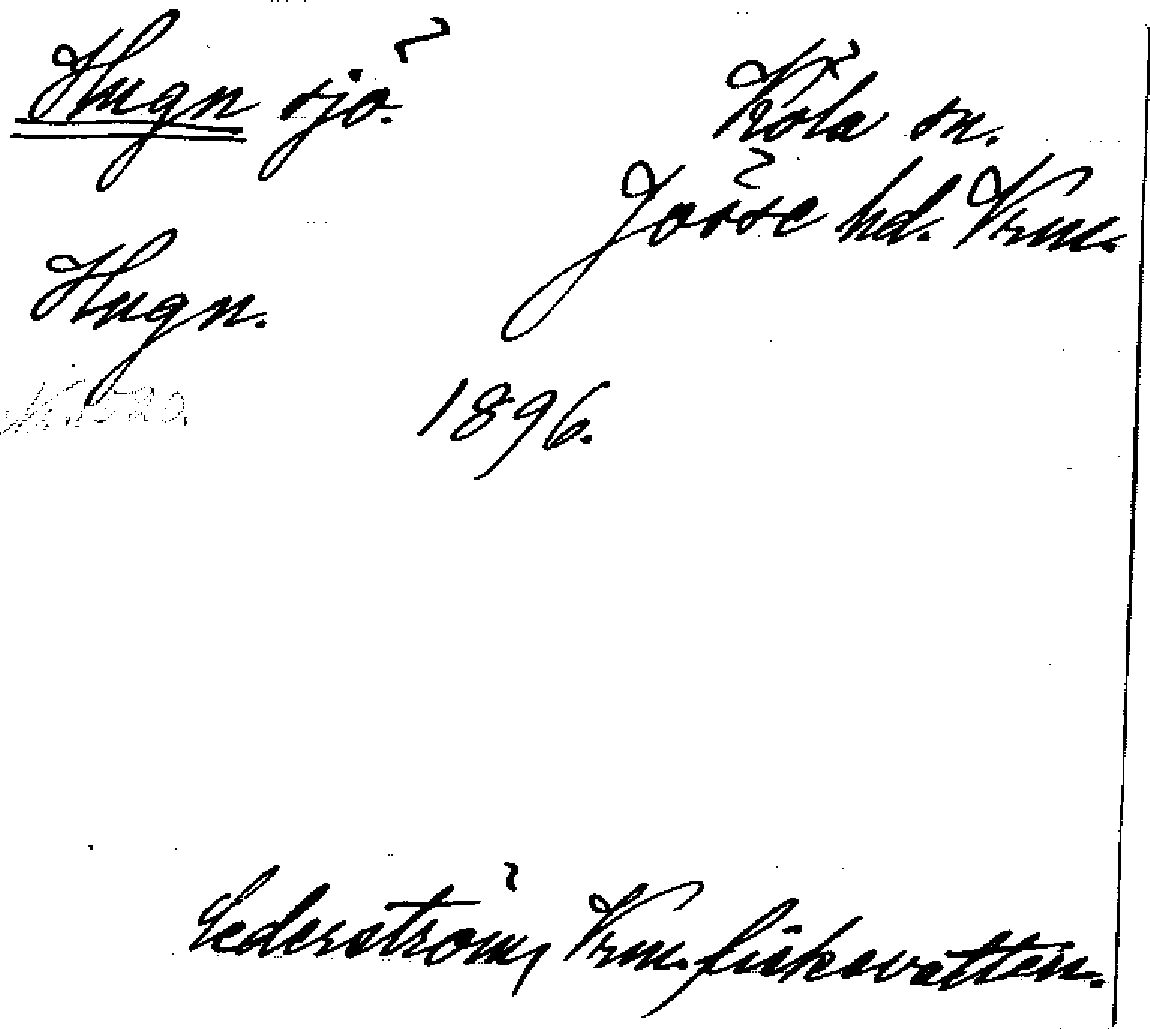 Hugn sjö.
Köla sn.
Jösse hd. Vrm.
Hugn.
1896.
Cederström, Vrm. fiskevatten.